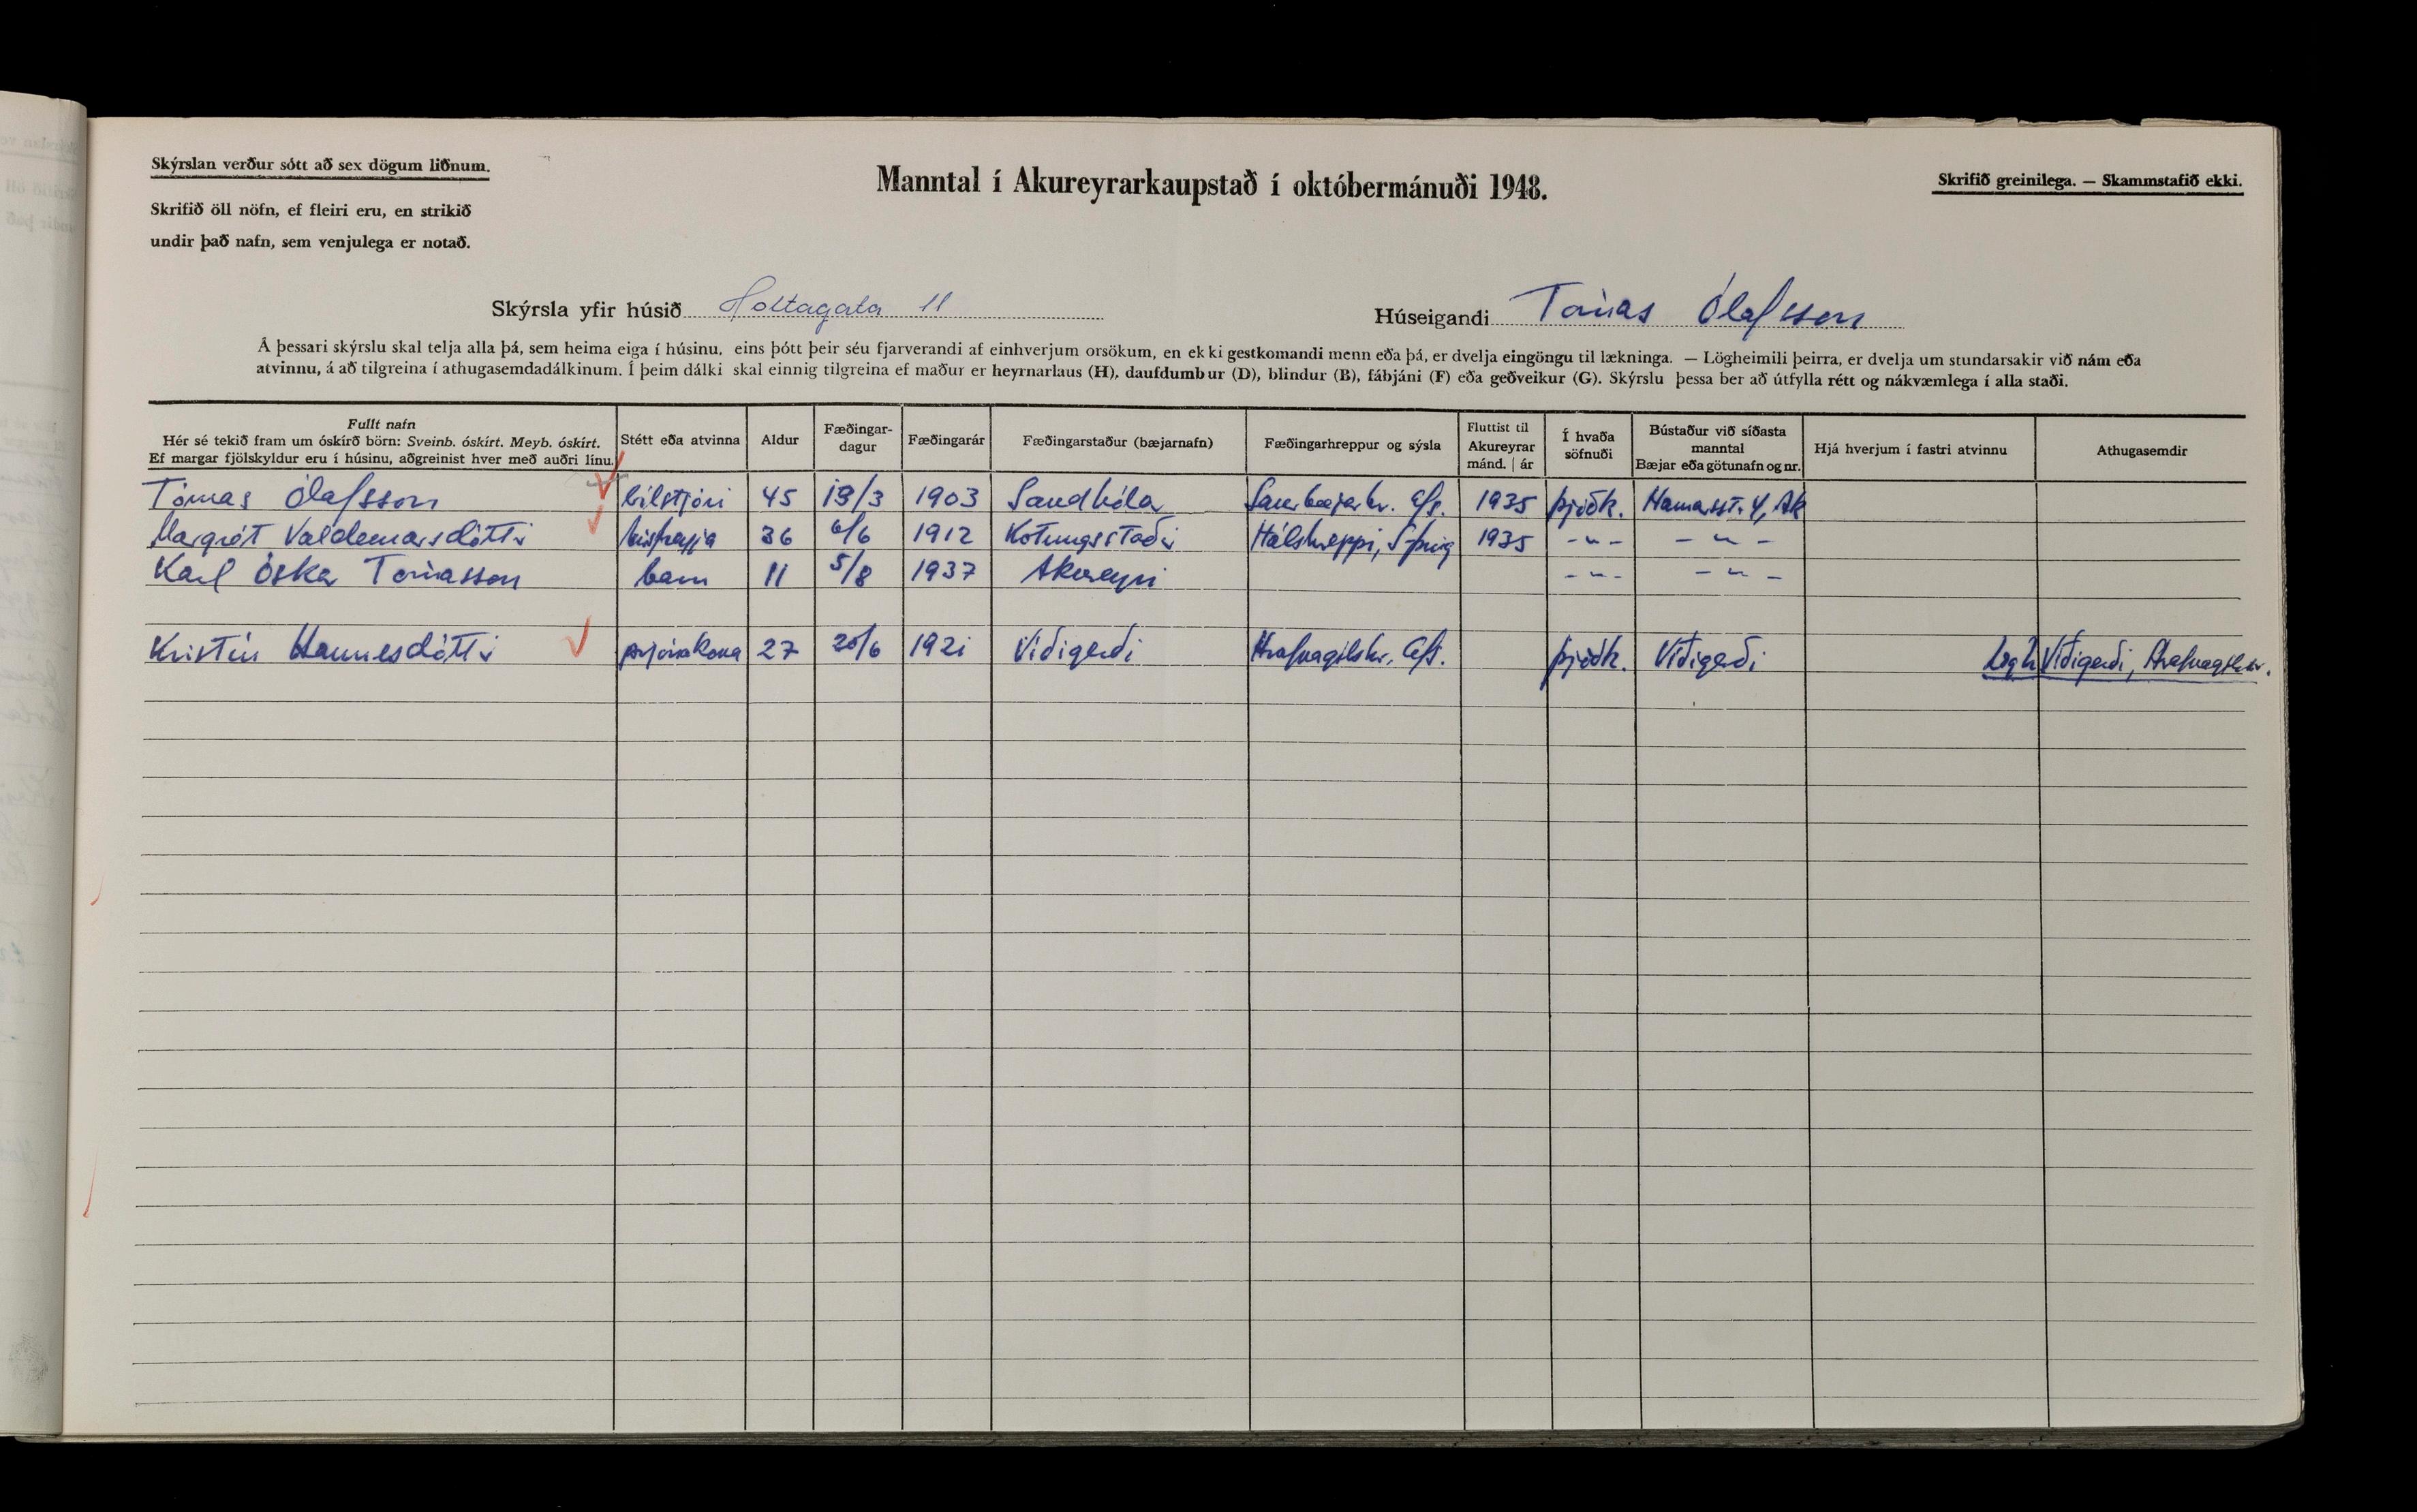 Skýrslan verður sótt að sex dögum liðnum.
Skrifið öll nöfn, ef fleiri eru, en strikið
undir það nafn, sem venjulega er notað.
Manntal í Akureyrarkaupstað í októbermánuði 1948.
Skrifið greinilega. — Skammstafið ekki.
Skýrsla yfir húsið Holtagata 11
Húseigandi Tómas Ólafsson
Á þessari skýrslu skal telja alla þá, sem heima eiga í húsinu, eins þótt þeir séu fjarverandi af einhverjum orsökum, en ekki gestkomandi menn eða þá, er dvelja eingöngu til lækninga. — Lögheimili þeirra, er dvelja um stundarsakir við nám eða
atvinnu, á að tilgreina í athugasemdadálkinum. Í þeim dálki skal einnig tilgreina ef maður er heyrnarlaus (H), daufdumbur (D), blindur (B), fábjáni (F) eða geðveikur (G). Skýrslu þessa ber að útfylla rétt og nákvæmlega í alla staði.
Fullt nafn
Hér sé tekið fram um óskírð börn: Sveinb. óskírt. Meyb. óskírt.
Ef margar fjölskyldur eru í húsinu, aðgreinist hver með auðri línu.
Stétt eða atvinna
Aldur
Fæðingar-
dagur
Fæðingarár
Fæðingarstaður (bæjarnafn)
Fæðingarhreppur og sýsla
Fluttist til
Akureyrar
mánd. | ár
Í hvaða
söfnuði
Bústaður við síðasta
manntal
Bæjar eða götunafn og nr.
Hjá hverjum í fastri atvinnu
Athugasemdir
Tómas Ólafsson bílstjóri 45 19/3 1903 Sandhóla Saurbæjarhr. Eyf. 1935 þjóðk. Hamarsst. 4, Ak
Margrét Valdemarsdóttir húsfreyja 36 6/6 1912 Kotungsstaðir Hálshreppi, S-Þing 1935 -〃- -〃-
Karl Óskar Tómasson barn 11 5/8 1937 Akureyri -〃- -〃-
Kristín Hannesdóttir prjónakona 27 20/6 1921 Víðigerði Hrafnagilshr. Eyf. þjóðk. Víðigerði Lögh Víðigerði, Hrafnagilshr.